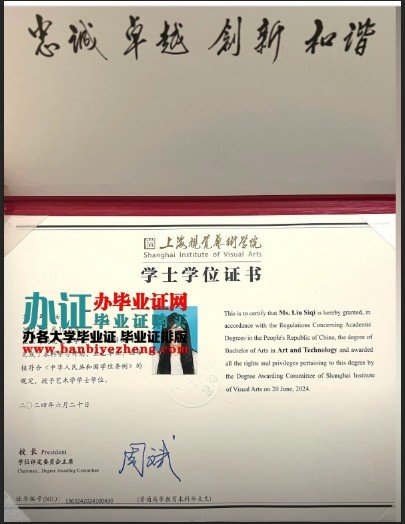 忠诚 卓越 创新 和谐
上海视觉艺术学院
Shanghai Institute of Visual Arts
学士学位证书
办证 办毕业证网
毕业证购买
办各大学毕业证,毕业证排版
www.banbiyezheng.com
值符合《中华人民共和国学位条例》的
规定,授予艺术学学士学位。
二〇二四年六月二十日
This is to certify that Ms. Lin Siqi is hereby granted, in
accordance with the Regulations Concerning Academic
Degrees in the People's Republic of China, the degree of
Bachelor of Arts in Art and Technology and awarded
all the rights and privileges pertaining to this degree by
the Degree Awarding Committee of Shanghai Institute
of Visual Arts on 20 June, 2024.
校 长 President
学位评定委员会主席
Chairman, Degree Awarding Committee
周斌
证书编号(NO.): 1363242024200430
(普通高等教育本科毕业生)